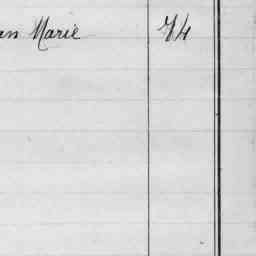 an Marie 74